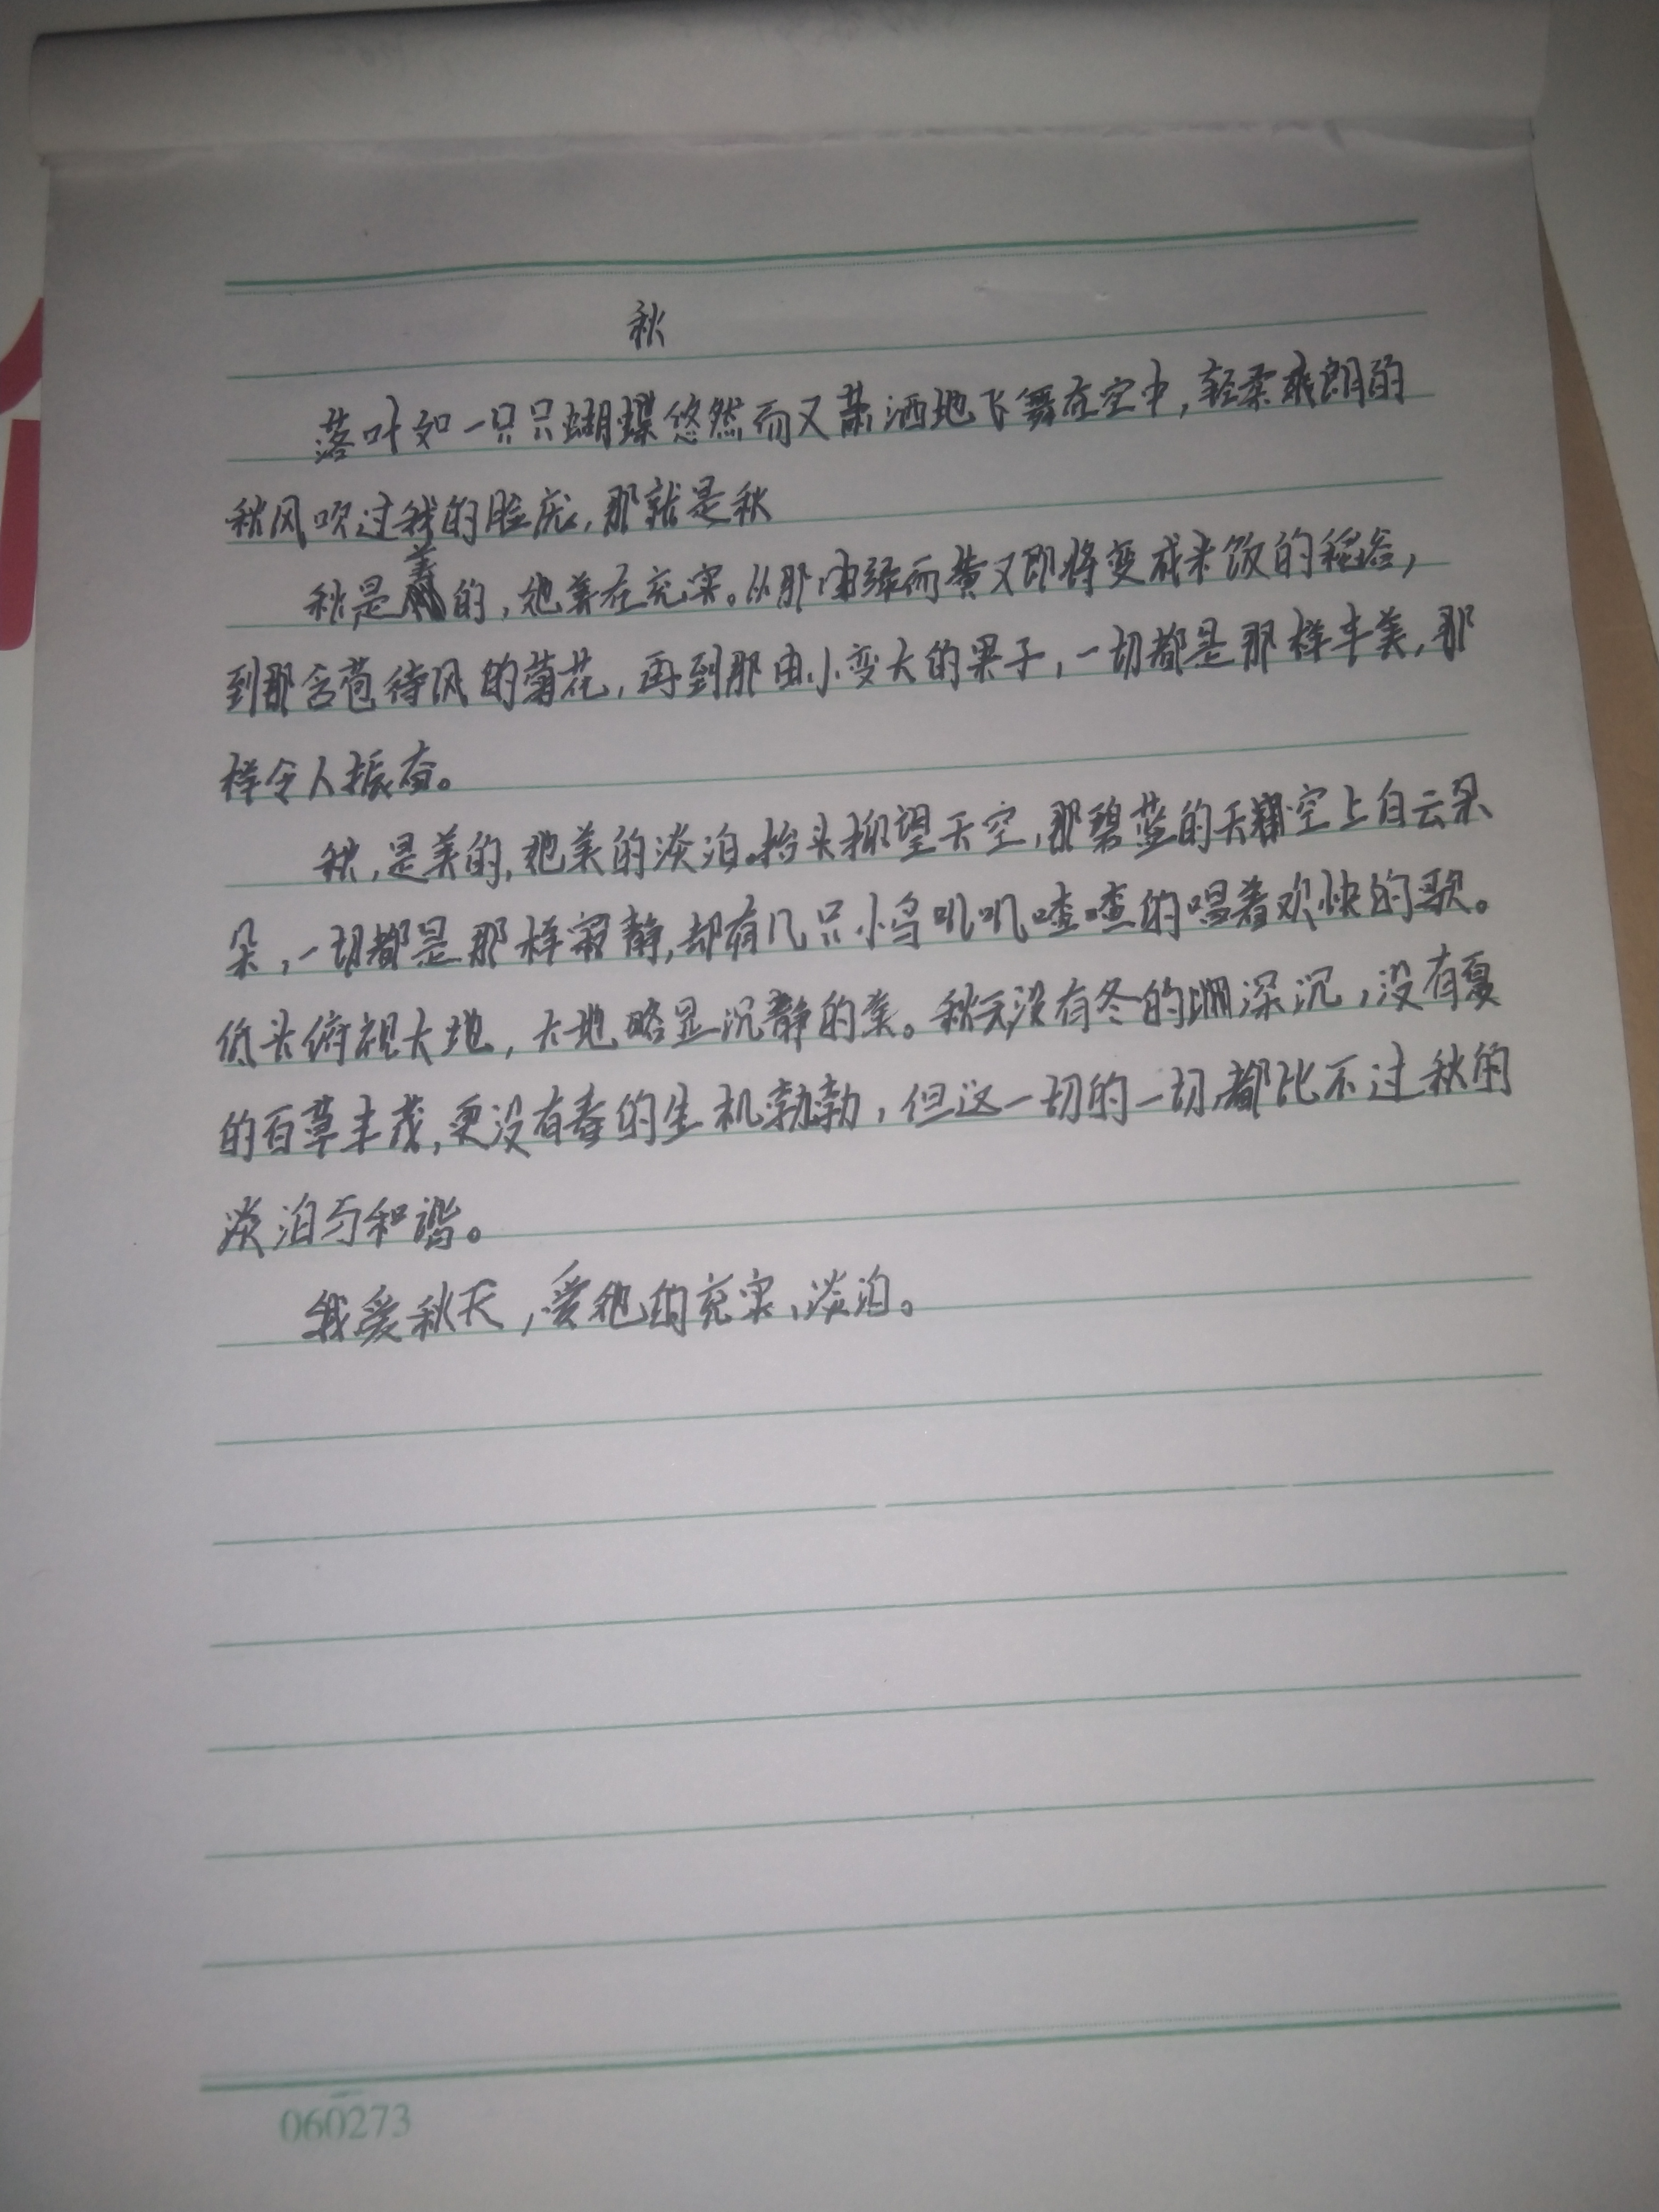 秋
落叶如一只只蝴蝶悠然而又萧洒地飞舞在空中,轻柔爽朗的
秋风吹过我的脸庞,那就是秋
秋是美的,她美在充实。从那由绿而黄又即将变成米饭的稻谷,
到那含苞待风的菊花,再到那由小变大的果子,一切都是那样丰美,那
样令人振奋。
秋,是美的,她美的淡泊。抬头仰望天空,那碧蓝的天空上白云朵
朵,一切都是那样寂静,却有几只小鸟叽叽喳喳的唱着欢快的歌。
低头俯视大地,大地略显沉静的美。秋天没有冬的深沉,没有夏
的百草丰茂,更没有春的生机勃勃,但这一切的一切都比不过秋的
淡泊与和谐。
我爱秋天,爱他的充实、淡泊。
060273